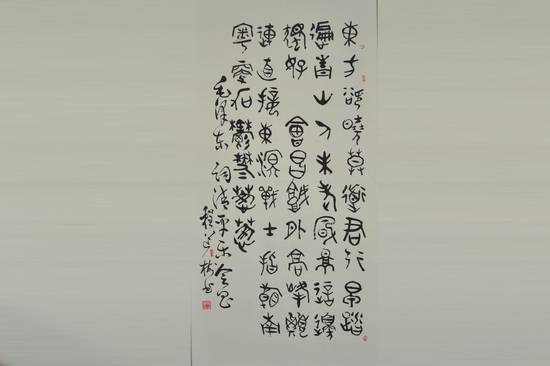 東方欲曉莫道君行早踏
遍青山人未老風景這邊
獨好 會昌城外高峰顛
連直接東溟戰士指看南
粵更加鬱鬱蔥蔥
毛泽东词清平乐会昌